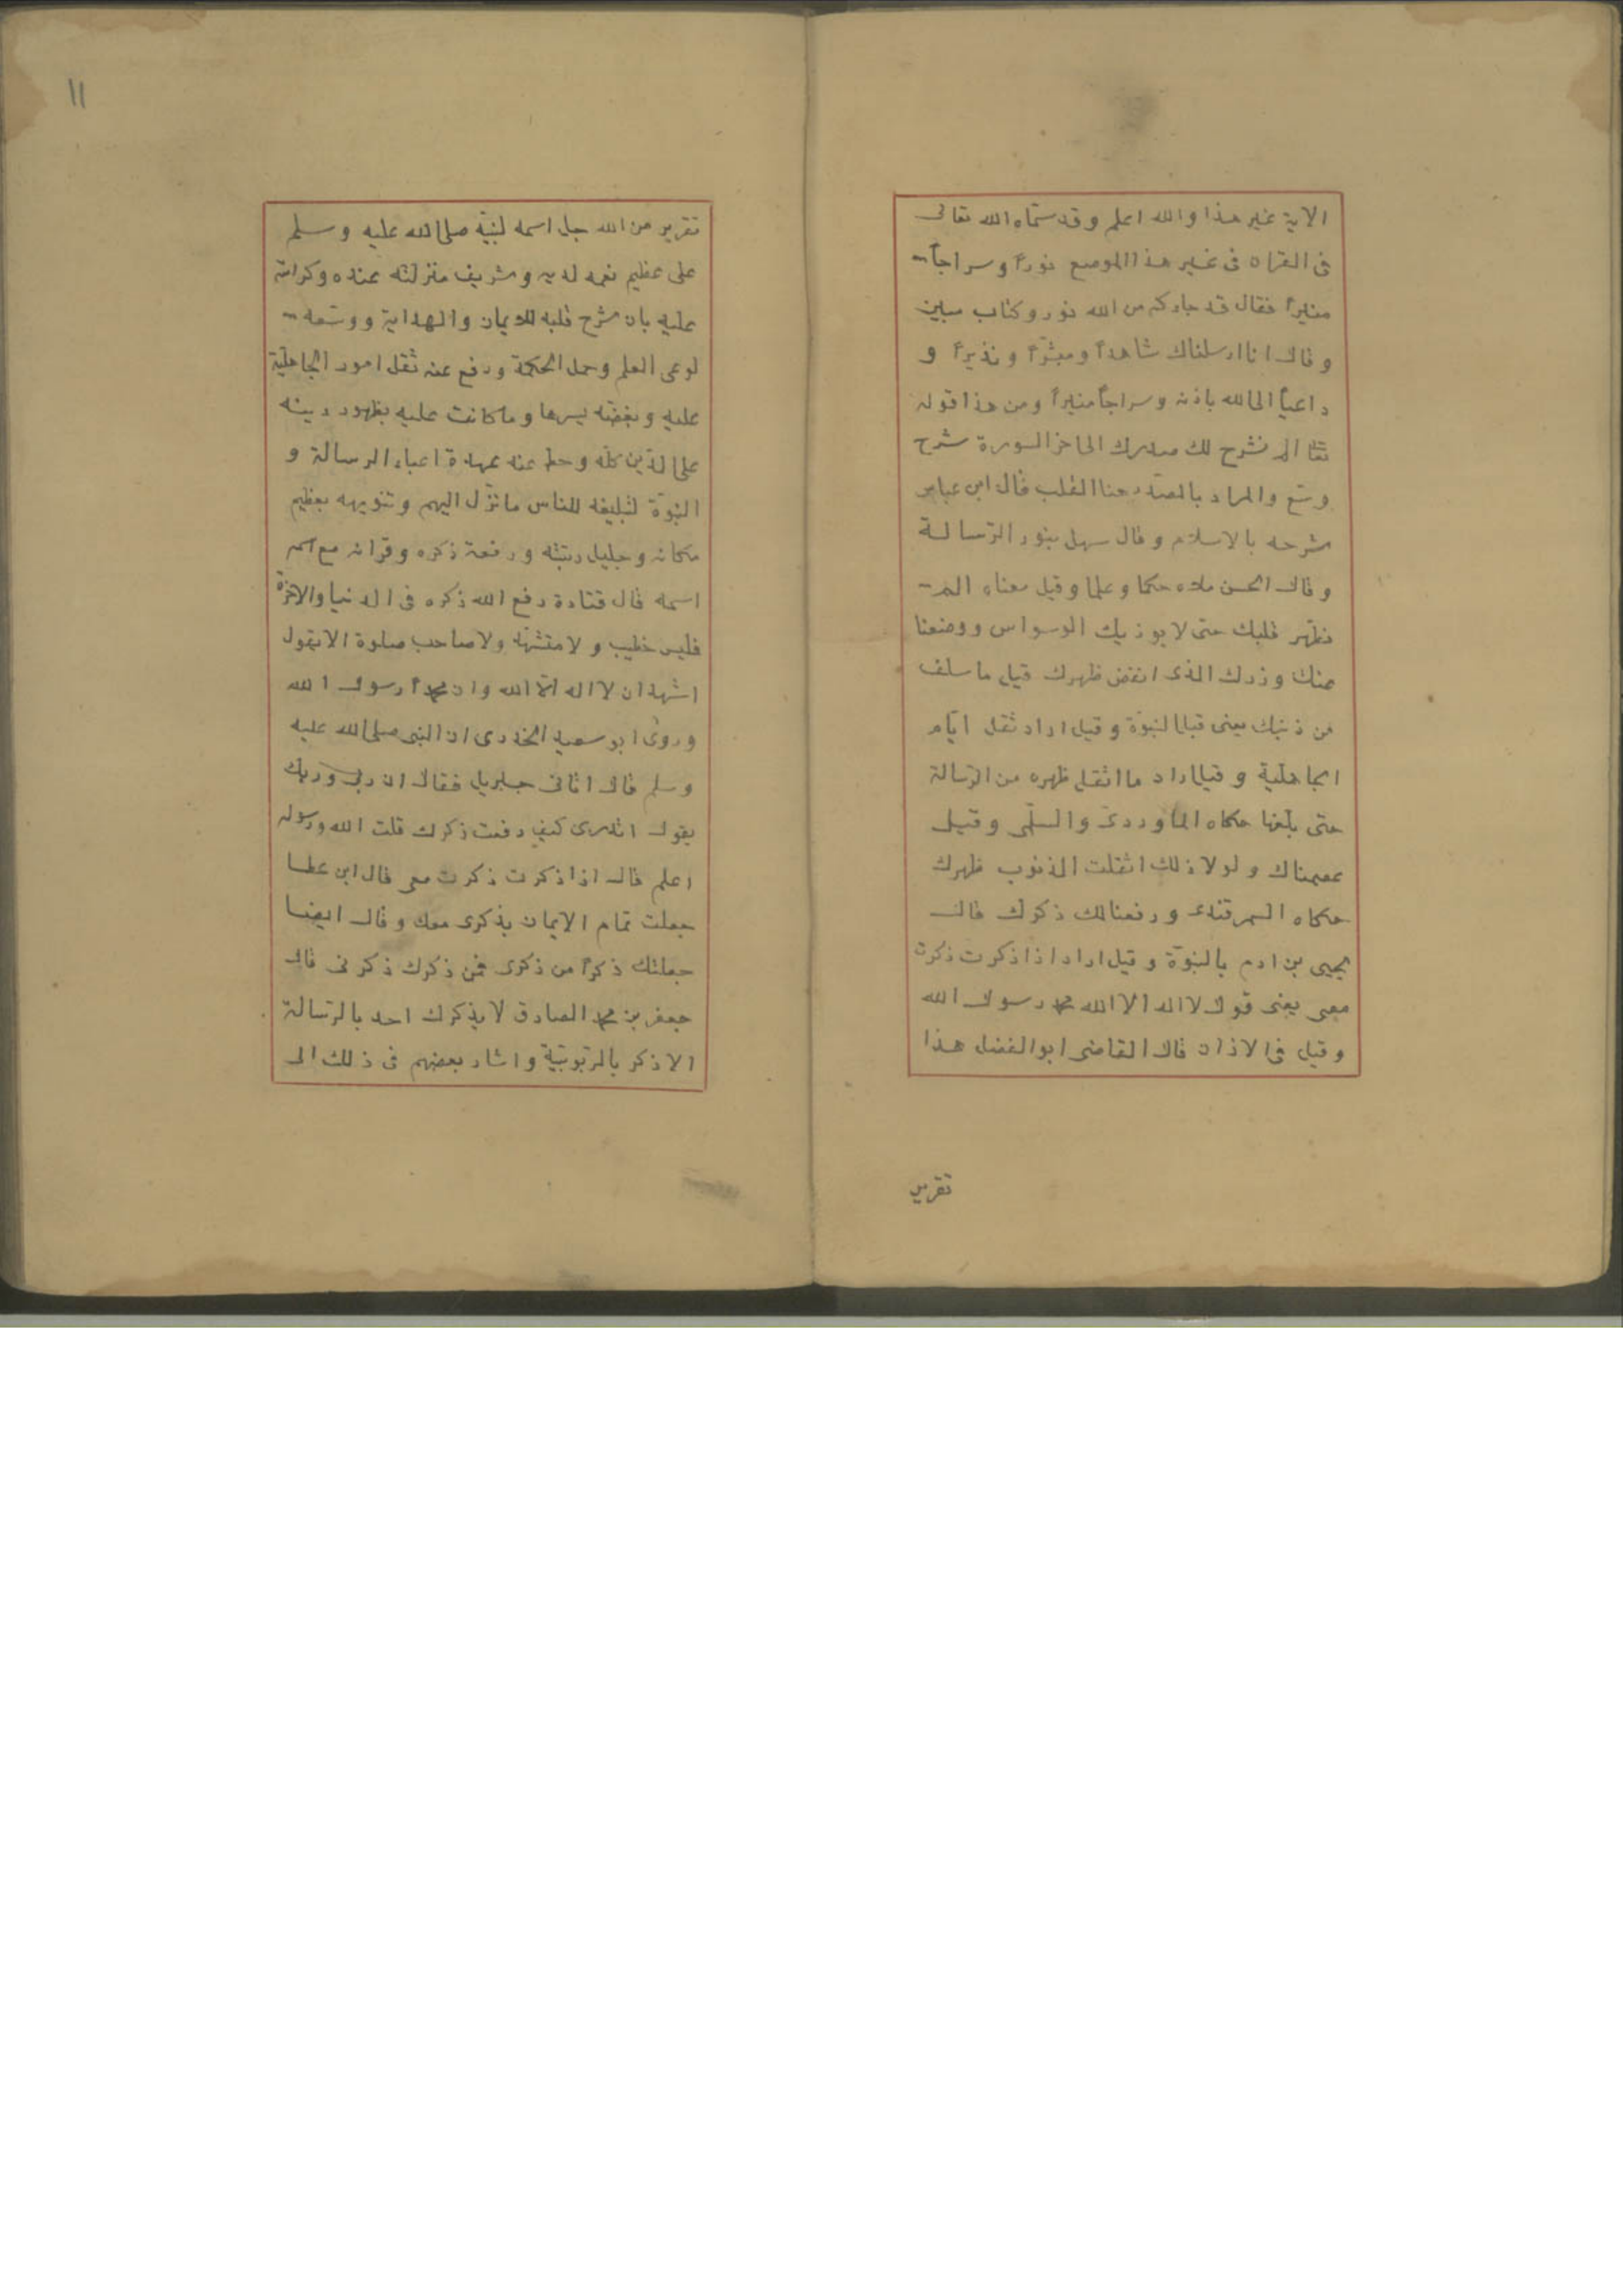 الاية غير هذا والله اعلم وقد سمّاه الله تعالى
فى القران فى غير هذا الموضع نوراً وسراجاً
منيراً فقال قد جاءكم من الله نور وكتاب مبين
وقال انا ارسلناك شاهداً ومبشّراً ونذيراً و
داعياً الى الله باذنه وسراجاً منيراً ومن هذا قوله
تعا الم نشرح لك صدرك الى اخر السورة شرح
وسّع والمراد بالصّدر هنا القلب قال ابن عباس
شرحه بالاسلام وقال سهل بنور الرّسالة
وقال الحسن ملاه حكما وعلما وقيل معناه الم
نطهّر قلبك حتى لا يوذيك الوسواس ووضعنا
عنك وزرك الذى انقض ظهرك قيل ما سلف
من ذنبك يعنى قبل النبوّة وقيل اراد ثقل ايّام
الجاهلية وقيل اراد ما اثقل ظهره من الرّسالة
حتى بلّغها حكاه الماوردى والسلّمى وقيل
عصمناك ولولا ذلك اثقلت الذنوب ظهرك
حكاه السمرقندى ورفعنا لك ذكرك قال
يحيى بن ادم بالنبوّة وقيل اراد اذا ذكرت ذكرت
معى يعنى قول لا اله الا الله محمد رسول الله
وقيل فى الاذان قال القاضى ابو الفضل هذا
تقرير
١١
تقرير من الله جل اسمه لنبيّه صلى الله عليه وسلم
على عظيم نعمه لديه وشريف منزلته عنده وكرامته
عليه بان شرح قلبه للايمان والهداية ووسّعه
لوعى العلم وحمل الحكمة ورفع عنه ثقل امور الجاهليّة
عليه وبغّضه لسيرها وما كانت عليه بظهور دينه
على الدّين كلّه وحط عنه عهدة اعباء الرسالة و
النبوّة لتبليغه للناس ما نزّل اليهم وتنويهه بعظيم
مكانه وجليل رتبته ورفعة ذكره وقرانه مع اسمه
اسمه قال قتادة رفع الله ذكره فى الدنيا والاخرة
فليس خطيب ولا متشهّد ولا صاحب صلوة الا يقول
اشهد ان لا اله الّا الله وان محمداً رسول الله
وروى ابو سعيد الخدرى ان النبى صلى الله عليه
وسلم قال اتانى جبريل فقال ان ربى وربك
يقول اتدرى كيف رفعت ذكرك قلت الله ورسوله
اعلم قال اذا ذكرت ذكرت معى قال ابن عطا
جعلت تمام الايمان بذكرى معك وقال ايضا
جعلتك ذكراً من ذكرى فمن ذكرك ذكرنى قال
جعفر بن محمد الصادق لا يذكرك احد بالرّسالة
الا ذكر بالرّبوبيّة واشار بعضهم فى ذلك الى